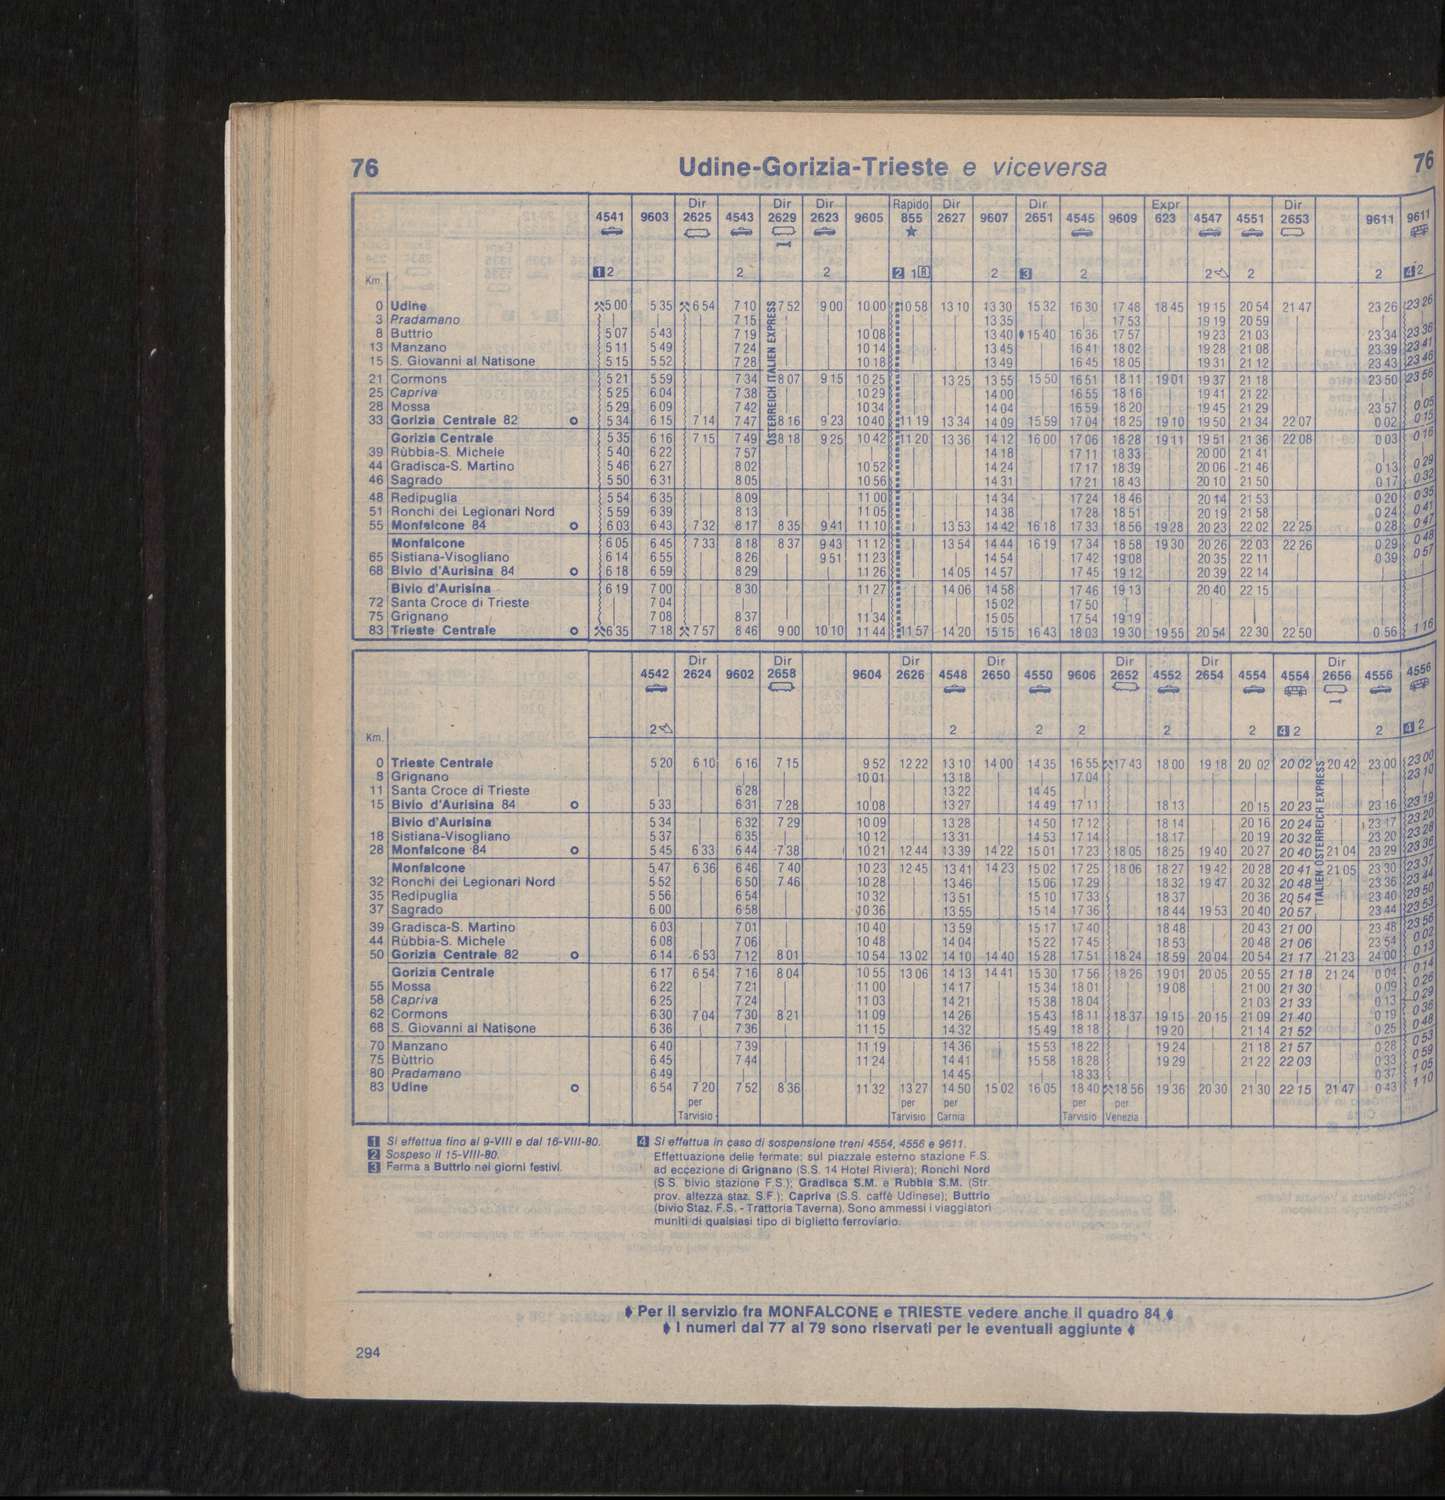 76 Udine-Gorizia-Trieste e viceversa 76
Dir Dir Dir Rapido Dir Dir Expr Dir
4541 9603 2625 4543 2629 2623 9605 855 2627 9607 2651 4545 9609 623 4547 4551 2653 9611 9611
★
1 2 2 2 2 1 R 2 3 2 2 2 2 4 2
Km.
ÖSTERREICH ITALIEN EXPRESS
0 Udine 5 00 5 35 6 54 7 10 7 52 9 00 10 00 10 58 13 10 13 30 15 32 16 30 17 48 18 45 19 15 20 54 21 47 23 26 23 26
3 Pradamano 7 15 13 35 17 53 19 19 20 59
8 Buttrio 5 07 5 43 7 19 10 08 13 40 15 40 16 36 17 57 19 23 21 03 23 34 23 36
13 Manzano 5 11 5 49 7 24 10 14 13 45 16 41 18 02 19 28 21 08 23 39 23 41
15 S. Giovanni al Natisone 5 15 5 52 7 28 10 18 13 49 16 45 18 05 19 31 21 12 23 43 23 46
21 Cormons 5 21 5 59 7 34 8 07 9 15 10 25 13 25 13 55 15 50 16 51 18 11 19 01 19 37 21 18 23 50 23 56
25 Capriva 5 25 6 04 7 38 10 29 14 00 16 55 18 16 19 41 21 22
28 Mossa 5 29 6 09 7 42 10 34 14 04 16 59 18 20 19 45 21 29 23 57 0 05
33 Gorizia Centrale 82 o 5 34 6 15 7 14 7 47 8 16 9 23 10 40 11 19 13 34 14 09 15 59 17 04 18 25 19 10 19 50 21 34 22 07 0 02 0 15
Gorizia Centrale 5 35 6 16 7 15 7 49 8 18 9 25 10 42 11 20 13 36 14 12 16 00 17 06 18 28 19 11 19 51 21 36 22 08 0 03 0 16
39 Rùbbia-S. Michele 5 40 6 22 7 57 14 18 17 11 18 33 20 00 21 41
44 Gradisca-S. Martino 5 46 6 27 8 02 10 52 14 24 17 17 18 39 20 06 21 46 0 13 0 29
46 Sagrado 5 50 6 31 8 05 10 56 14 31 17 21 18 43 20 10 21 50 0 17 0 32
48 Redipuglia 5 54 6 35 8 09 11 00 14 34 17 24 18 46 20 14 21 53 0 20 0 35
51 Ronchi dei Legionari Nord 5 59 6 39 8 13 11 05 14 38 17 28 18 51 20 19 21 58 0 24 0 41
55 Monfalcone 84 o 6 03 6 43 7 32 8 17 8 35 9 41 11 10 13 53 14 42 16 18 17 33 18 56 19 28 20 23 22 02 22 25 0 28 0 47
Monfalcone 6 05 6 45 7 33 8 18 8 37 9 43 11 12 13 54 14 44 16 19 17 34 18 58 19 30 20 26 22 03 22 26 0 29 0 48
65 Sistiana-Visogliano 6 14 6 55 8 26 9 51 11 23 14 54 17 42 19 08 20 35 22 11 0 39 0 57
68 Bivio d'Aurisina 84 o 6 18 6 59 8 29 11 26 14 05 14 57 17 45 19 12 20 39 22 14
Bivio d'Aurisina 6 19 7 00 8 30 11 27 14 06 14 58 17 46 19 13 20 40 22 15
72 Santa Croce di Trieste 7 04 15 02 17 50
75 Grignano 7 08 8 37 11 34 15 05 17 54 19 19
83 Trieste Centrale o 6 35 7 18 7 57 8 46 9 00 10 10 11 44 11 57 14 20 15 15 16 43 18 03 19 30 19 55 20 54 22 30 22 50 0 56 1 16
Dir Dir Dir Dir Dir Dir Dir
4542 2624 9602 2658 9604 2626 4548 2650 4550 9606 2652 4552 2654 4554 4554 2656 4556 4556
2 2 2 2 2 2 4 2 2 4 2
Km.
ITALIEN-ÖSTERREICH EXPRESS
0 Trieste Centrale 5 20 6 10 6 16 7 15 9 52 12 22 13 10 14 00 14 35 16 55 17 43 18 00 19 18 20 02 20 02 20 42 23 00 23 00
8 Grignano 10 01 13 18 17 04 23 10
11 Santa Croce di Trieste 6 28 13 22 14 45
15 Bivio d'Aurisina 84 o 5 33 6 31 7 28 10 08 13 27 14 49 17 11 18 13 20 15 20 23 23 16 23 19
Bivio d'Aurisina 5 34 6 32 7 29 10 09 13 28 14 50 17 12 18 14 20 16 20 24 23 17 23 20
18 Sistiana-Visogliano 5 37 6 35 10 12 13 31 14 53 17 14 18 17 20 19 20 32 23 20 23 28
28 Monfalcone 84 o 5 45 6 33 6 44 7 38 10 21 12 44 13 39 14 22 15 01 17 23 18 05 18 25 19 40 20 27 20 40 21 04 23 29 23 36
Monfalcone 5 47 6 36 6 46 7 40 10 23 12 45 13 41 14 23 15 02 17 25 18 06 18 27 19 42 20 28 20 41 21 05 23 30 23 37
32 Ronchi dei Legionari Nord 5 52 6 50 7 46 10 28 13 46 15 06 17 29 18 32 19 47 20 32 20 48 23 36 23 44
35 Redipuglia 5 56 6 54 10 32 13 51 15 10 17 33 18 37 20 36 20 54 23 40 23 50
37 Sagrado 6 00 6 58 10 36 13 55 15 14 17 36 18 44 19 53 20 40 20 57 23 44 23 53
39 Gradisca-S. Martino 6 03 7 01 10 40 13 59 15 17 17 40 18 48 20 43 21 00 23 48 23 56
44 Rùbbia-S. Michele 6 08 7 06 10 48 14 04 15 22 17 45 18 53 20 48 21 06 23 54 0 02
50 Gorizia Centrale 82 o 6 14 6 53 7 12 8 01 10 54 13 02 14 10 14 40 15 28 17 51 18 24 18 59 20 04 20 54 21 17 21 23 24 00 0 13
Gorizia Centrale 6 17 6 54 7 16 8 04 10 55 13 06 14 13 14 41 15 30 17 56 18 26 19 01 20 05 20 55 21 18 21 24 0 04 0 14
55 Mossa 6 22 7 21 11 00 14 17 15 34 18 01 19 08 21 00 21 30 0 09 0 26
58 Capriva 6 25 7 24 11 03 14 21 15 38 18 04 21 03 21 33 0 13 0 29
62 Cormons 6 30 7 04 7 30 8 21 11 09 14 26 15 43 18 11 18 37 19 15 20 15 21 09 21 40 0 19 0 36
68 S. Giovanni al Natisone 6 36 7 36 11 15 14 32 15 49 18 18 19 20 21 14 21 52 0 25 0 48
70 Manzano 6 40 7 39 11 19 14 36 15 53 18 22 19 24 21 18 21 57 0 28 0 53
75 Bùttrio 6 45 7 44 11 24 14 41 15 58 18 28 19 29 21 22 22 03 0 33 0 59
80 Pradamano 6 49 14 45 18 33 0 37 1 05
83 Udine o 6 54 7 20 7 52 8 36 11 32 13 27 14 50 15 02 16 05 18 40 18 56 19 36 20 30 21 30 22 15 21 47 0 43 1 10
per per per per per
Tarvisio Tarvisio Carnia Tarvisio Venezia
1 Si effettua fino al 9-VIII e dal 16-VIII-80.
2 Sospeso il 15-VIII-80.
3 Ferma a Buttrio nei giorni festivi.
4 Si effettua in caso di sospensione treni 4554, 4556 e 9611.
Effettuazione delle fermate: sul piazzale esterno stazione F.S.
ad eccezione di Grignano (S.S. 14 Hotel Riviera); Ronchi Nord
(S.S. bivio stazione F.S.); Gradisca S.M. e Rubbia S.M. (Str.
prov. altezza staz. S.F.); Capriva (S.S. caffè Udinese); Buttrio
(bivio Staz. F.S. - Trattoria Taverna). Sono ammessi i viaggiatori
muniti di qualsiasi tipo di biglietto ferroviario.
Per il servizio fra MONFALCONE e TRIESTE vedere anche il quadro 84
I numeri dal 77 al 79 sono riservati per le eventuali aggiunte
294